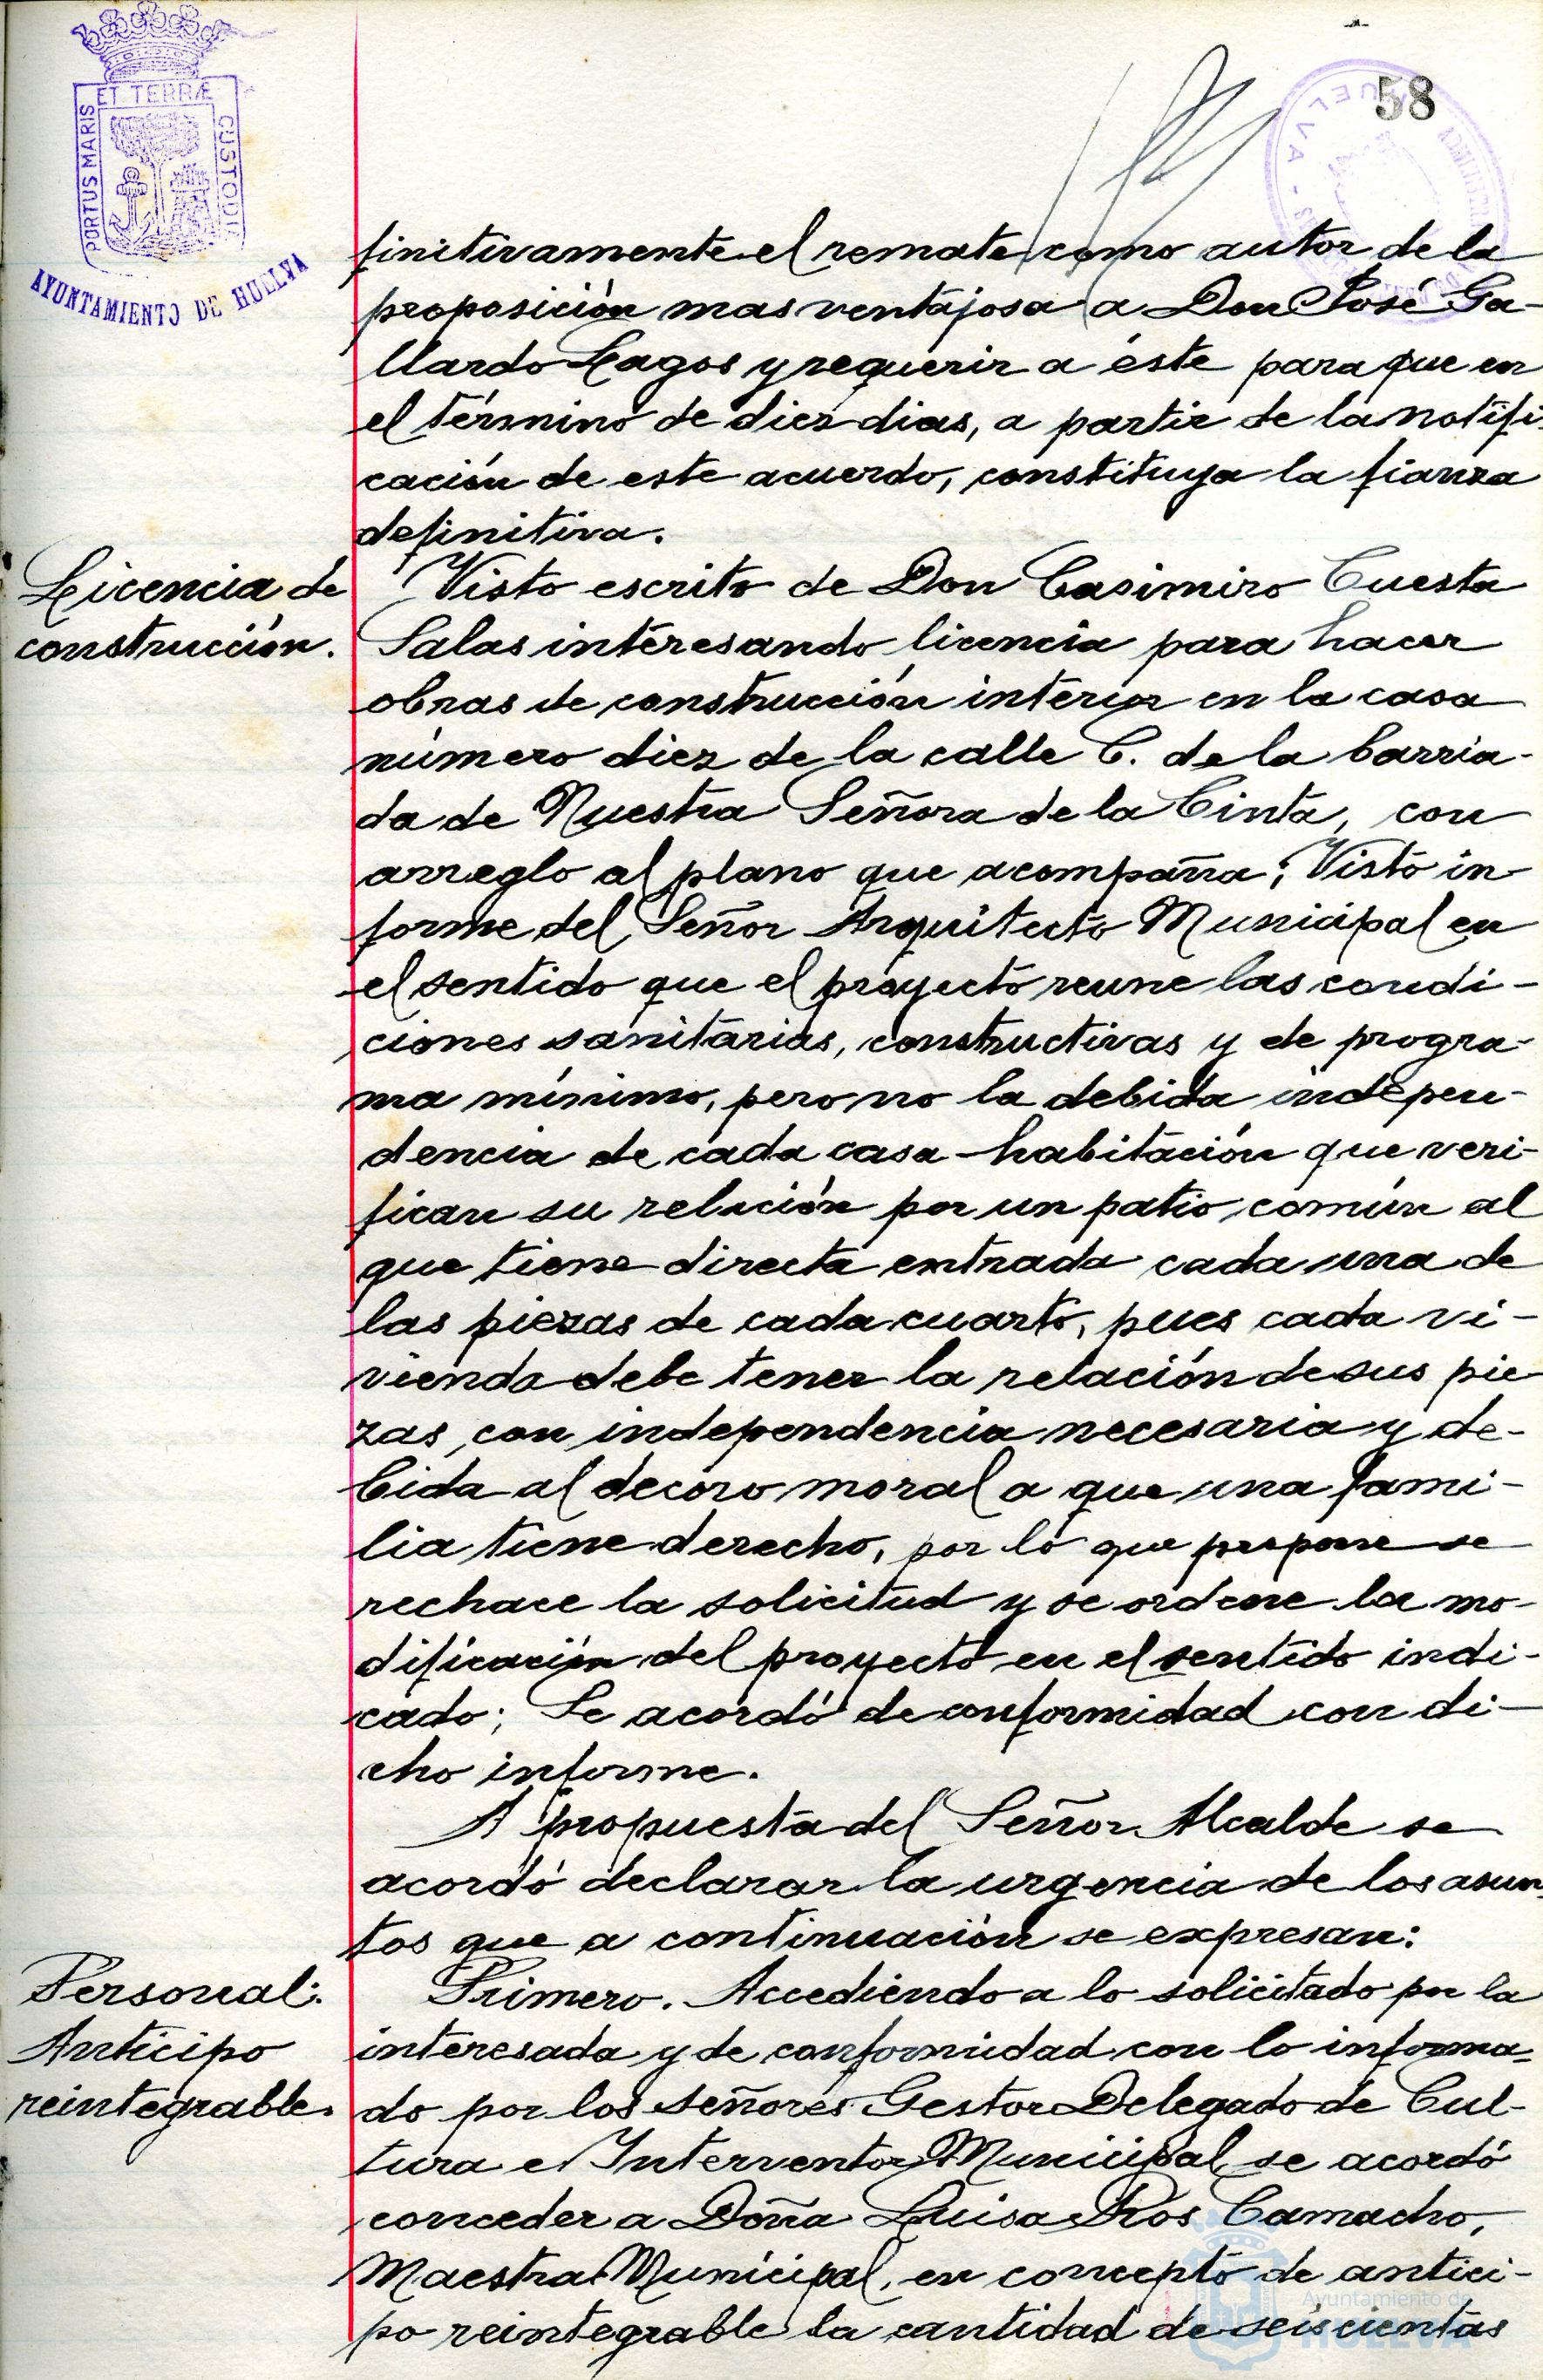 58
ET TERRÆ
PORTUS MARIS
CUSTODIA
AYUNTAMIENTO DE HUELVA
finitivamente el remate como autor de la
proposición mas ventajosa a Don José Ga-
llardo Lagos y requerir a éste para que en
el término de diez dias, a partir de la notifi-
cación de este acuerdo, constituya la fianza
definitiva.
Licencia de
construcción.
Visto escrito de Don Casimiro Cuesta
Salas interesando licencia para hacer
obras de construcción interior en la casa
número diez de la calle C. de la barria-
da de Nuestra Señora de la Cinta, con
arreglo al plano que acompaña; Visto in-
forme del Señor Arquitecto Municipal en
el sentido que el proyecto reune las condi-
ciones sanitarias, constructivas y de progra-
ma mínimo, pero no la debida indepen-
dencia de cada casa-habitación que veri-
fican su relación por un patio común al
que tiene directa entrada cada una de
las piezas de cada cuarto, pues cada vi-
vienda debe tener la relación de sus pie
zas, con independencia necesaria y de-
bida al decoro moral a que una fami-
lia tiene derecho, por lo que propone se
rechace la solicitud y se ordene la mo-
dificación del proyecto en el sentido indi-
cado; Se acordó de conformidad con di-
cho informe.
A propuesta del Señor Alcalde se
acordó declarar la urgencia de los asun-
tos que a continuación se expresan:
Personal:
Anticipo
reintegrable.
Primero. Accediendo a lo solicitado por la
interesada y de conformidad con lo informa-
do por los señores Gestor Delegado de Cul-
tura e Interventor Municipal, se acordó
conceder a Doña Luisa Ros Camacho,
Maestra Municipal, en concepto de antici-
po reintegrable la cantidad de seiscientas
Ayuntamiento de
HUELVA